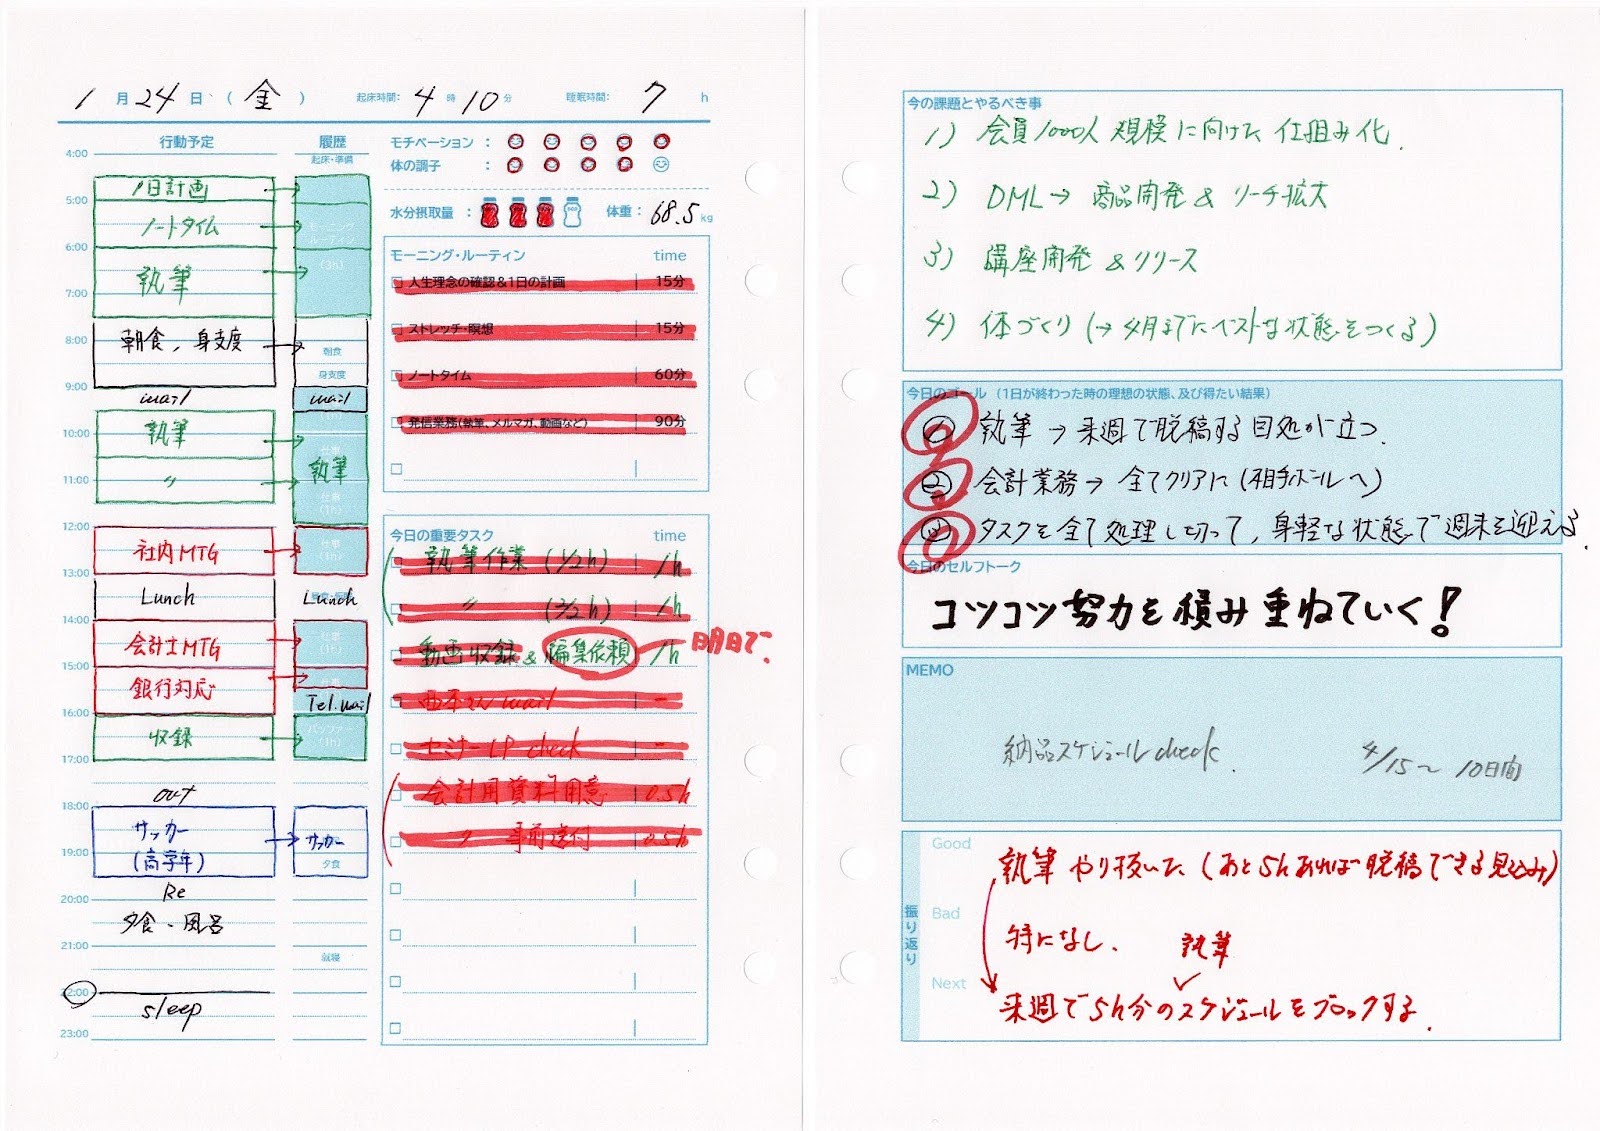 1月24日（金） 起床時間：4時10分 睡眠時間：7h
行動予定 履歴
4:00 起床・準備
1日計画
5:00
ノートタイム モーニングルーティン
6:00 (3h)
執筆
7:00
8:00 朝食、身支度 朝食
身支度
9:00
mail mail
10:00 執筆 仕事
執筆
11:00 〃 仕事 (1h)
12:00
社内MTG 仕事 (1h)
13:00
Lunch Lunch
14:00
会計士MTG 仕事 (1h)
15:00
銀行対応 仕事
Tel.mail
16:00
収録 バッファー (1h)
17:00
out
18:00
サッカー サッカー
(高学年) 夕食
19:00
Re
20:00
夕食・風呂
21:00
就寝
22:00
sleep
23:00
モチベーション：
体の調子：
水分摂取量： 体重：68.5kg
モーニング・ルーティン time
人生理念の確認＆1日の計画 15分
ストレッチ・瞑想 15分
ノートタイム 60分
発信業務(執筆、メルマガ、動画など) 90分
今日の重要タスク time
執筆作業 (1/2h) 1h
〃 (2/2h) 1h
動画収録 & 編集依頼 1h 明日で.
西本さんmail -
セミナーLP check -
会計用資料用意 0.5h
〃 事前送付 0.5h
今の課題とやるべき事
1) 会員1000人規模に向けた仕組み化.
2) DML→ 商品開発 & リーチ拡大
3) 講座開発 & リリース
4) 体づくり (→4月までにベストな状態をつくる)
今日のゴール（1日が終わった時の理想の状態、及び得たい結果）
① 執筆→来週で脱稿する目処が立つ.
② 会計業務→全てクリアに (相手ボールへ)
③ タスクを全て処理し切って、身軽な状態で週末を迎える.
今日のセルフトーク
コツコツ努力を積み重ねていく!
MEMO
納品スケジュールcheck. 4/15〜10日間
振り返り
Good
執筆やり抜いた (あと5hあれば脱稿できる見込み)
Bad
特になし.
執筆
Next
来週で5h分のスケジュールをブロックする.